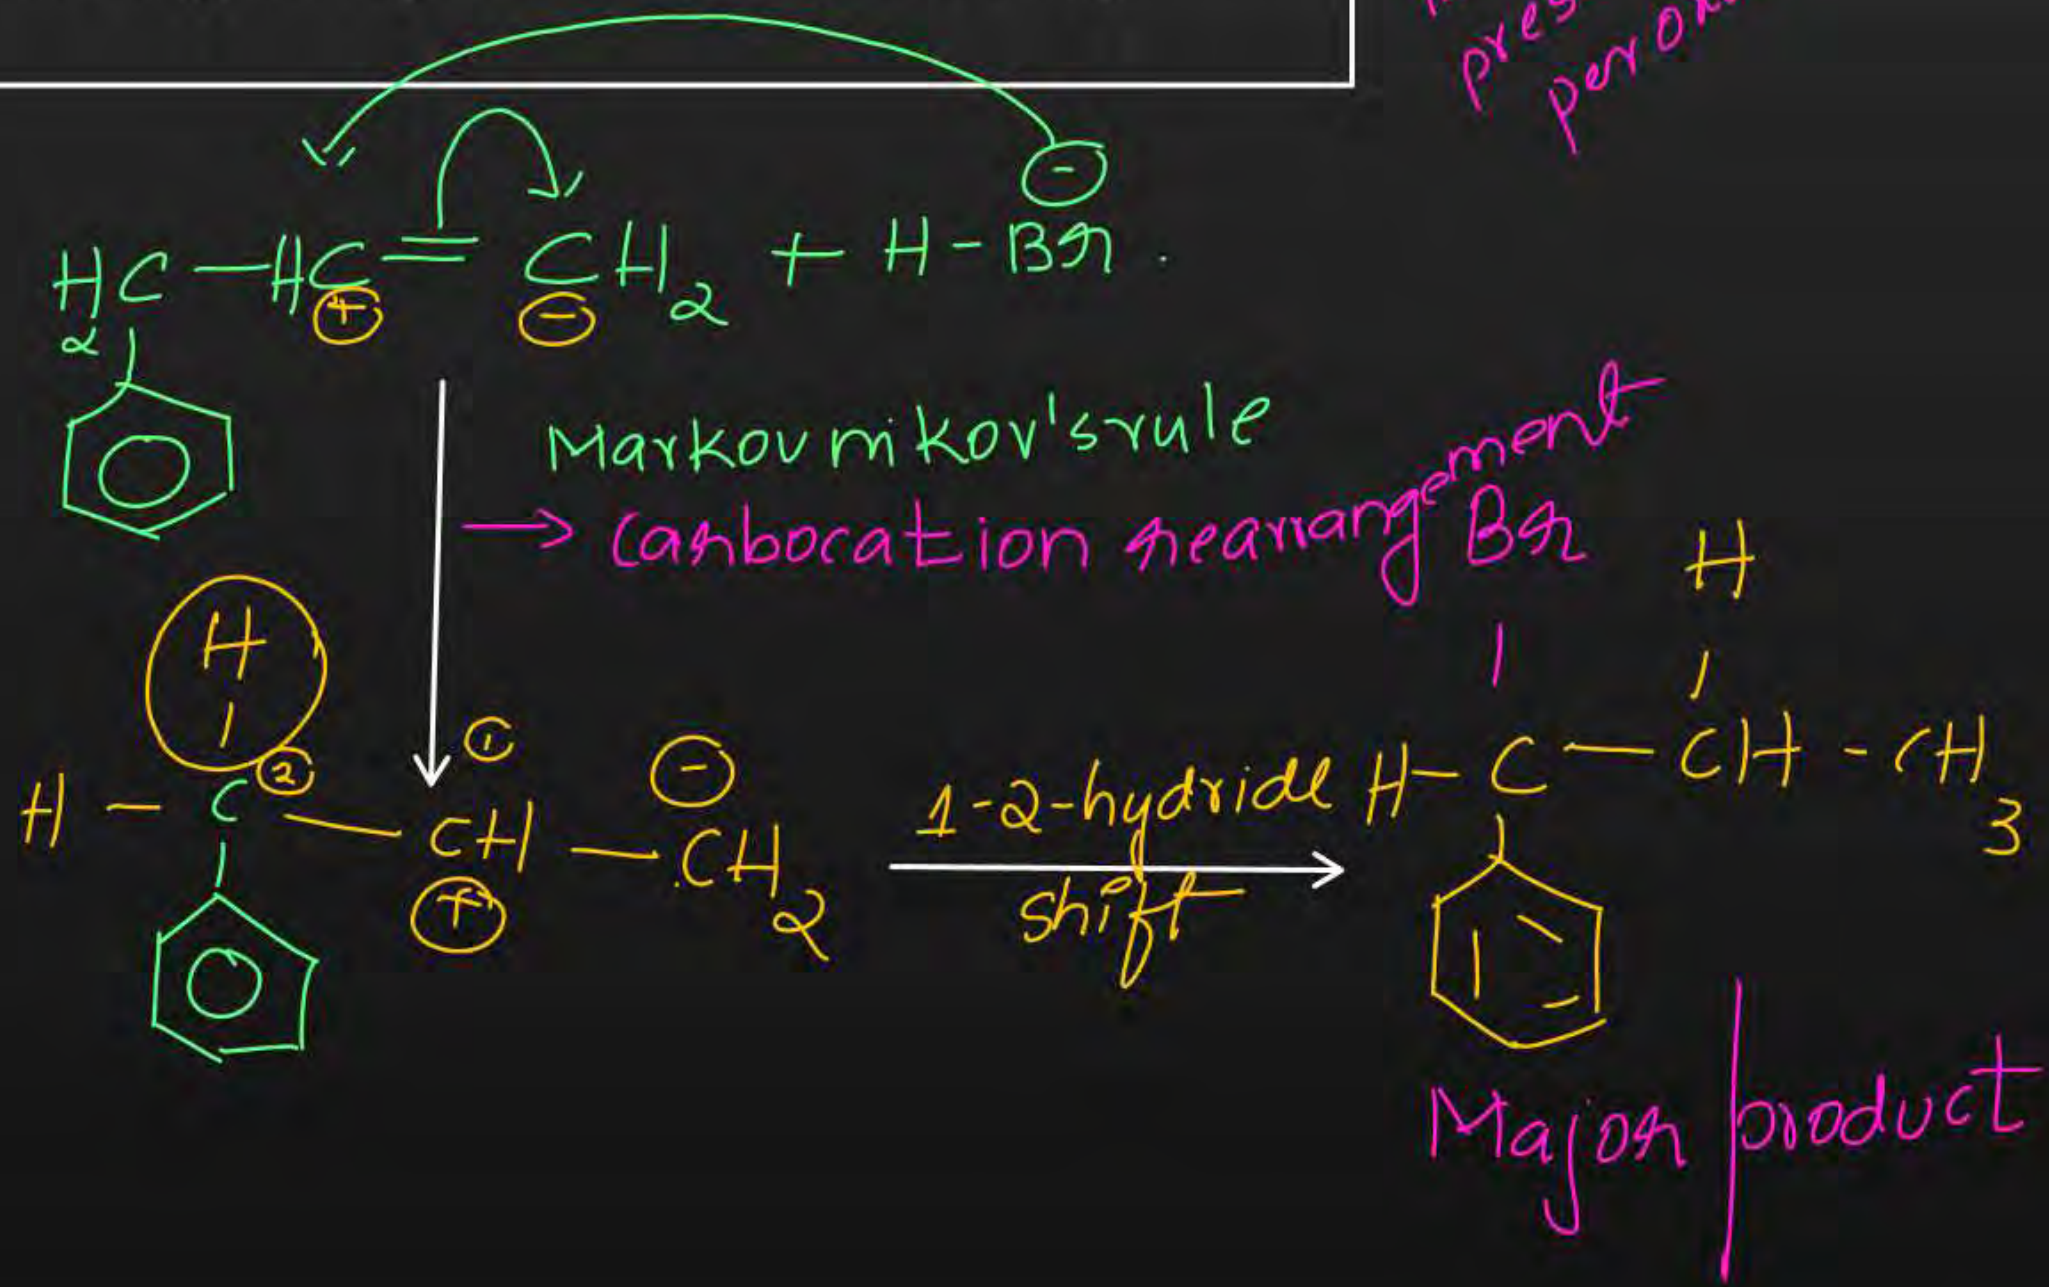 pres
pero
H₂C-HC=CH₂ + H-Br.
⊕ ⊖
⊖
Markovnikov's rule
→ Carbocation rearrangement
H
H-C-CH-CH₂
② ① ⊖
⊕
1-2-hydride
shift
Br H
H-C-CH-CH₃
Major product